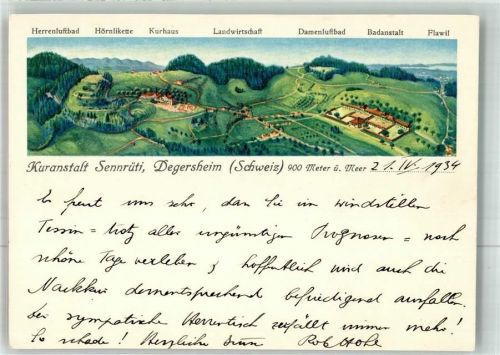 Herrenluftbad Hörnlikette Kurhaus Landwirtschaft Damenluftbad Badanstalt Flawil
Kuranstalt Sennrüti, Degersheim (Schweiz) 900 Meter ü. Meer 21. IV. 1934
Es freut uns sehr, dass Sie im windstillen
Tessin = trotz aller ungünstigen Prognosen = noch
schöne Tage verleben & hoffentlich wird auch die
Nachkur dementsprechend befriedigend ausfallen.
Der sympatische Herrentisch zerfällt immer mehr!
So schade! Herzliche